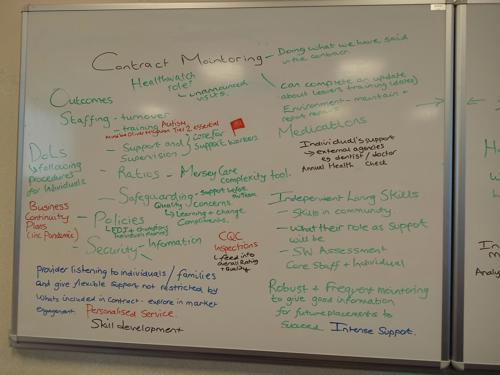 Contract Monitoring - Doing what we have said
in the contract
Healthwatch
role?
unannounced
visits.
can complete an update
about leavers training (dates)
Environment - maintain
Outcomes
Staffing - turnover
- training Autism
Tier 2 essential
- Support and
Supervision
care for
Support workers
- Ratios - Mersey Care
complexity tool.
Safeguarding - support before
Quality concerns
Learning + change
Compliments.
- Policies
- Security - Information
DoLs
following
procedures
for individuals
Business
Continuity
Plans
(inc Pandemic)
CQC
Inspections
feed into
overall Rating
+ Quality
Provider listening to individuals / families
and give flexible support not restricted by
Whats included in contract - explore in market
engagement Personalised Service.
Skill development
Medications
Individual's support
external agencies
eg dentist / doctor
Annual Health Check
Independent Living Skills
- Skills in community
- what their role as support
will be
- SW Assessment
Core Staff + Individual
Robust + Frequent monitoring
to give good information
for future placements to
Succeed Intense Support.